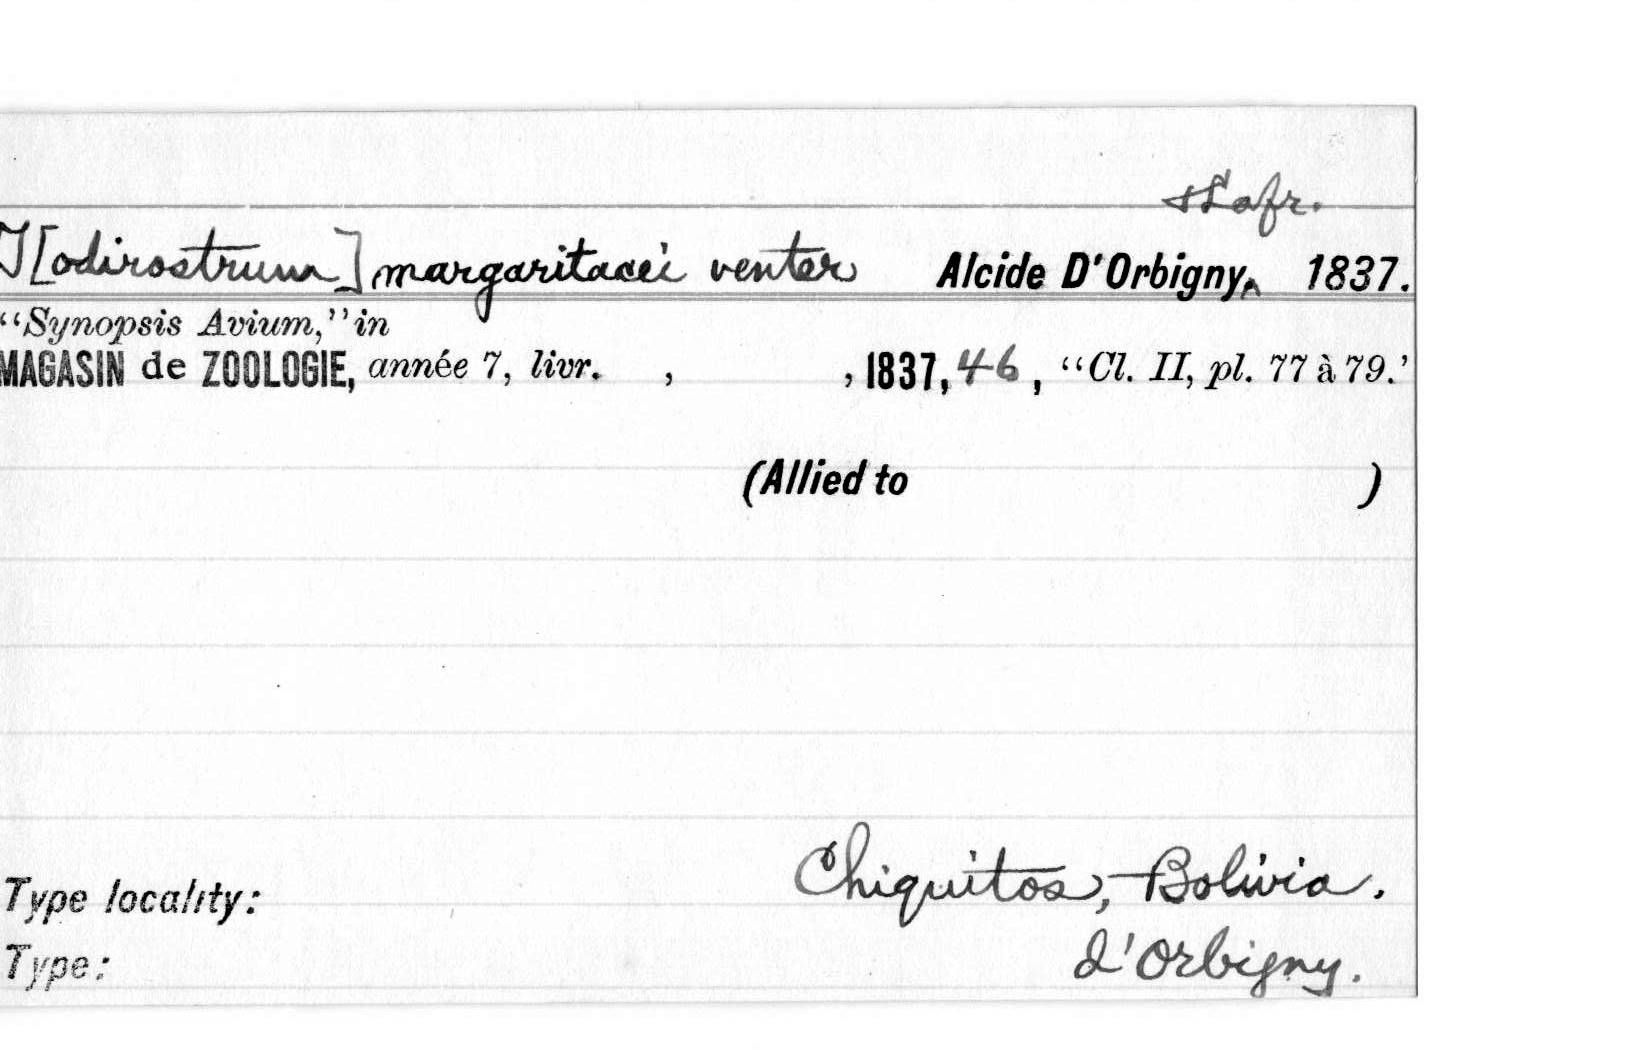 & Lafr.
T[odirostrum] margaritacei venter Alcide D'Orbigny, 1837.
“Synopsis Avium,” in
MAGASIN de ZOOLOGIE, année 7, livr. , , 1837, 46, “Cl. II, pl. 77 à 79.’
(Allied to )
Chiquitos, Bolivia.
Type locality:
Type: d'Orbigny.